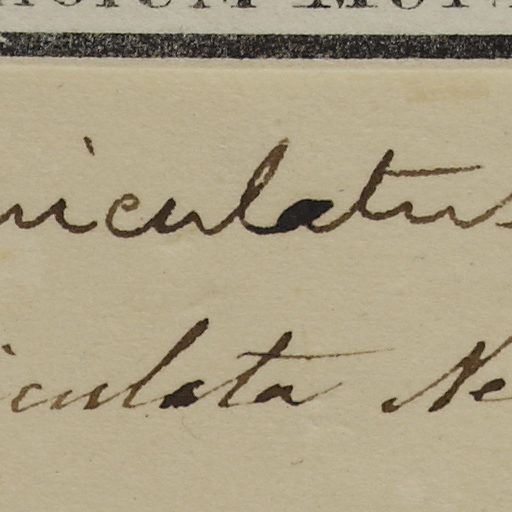 niculatus
iculata Ne